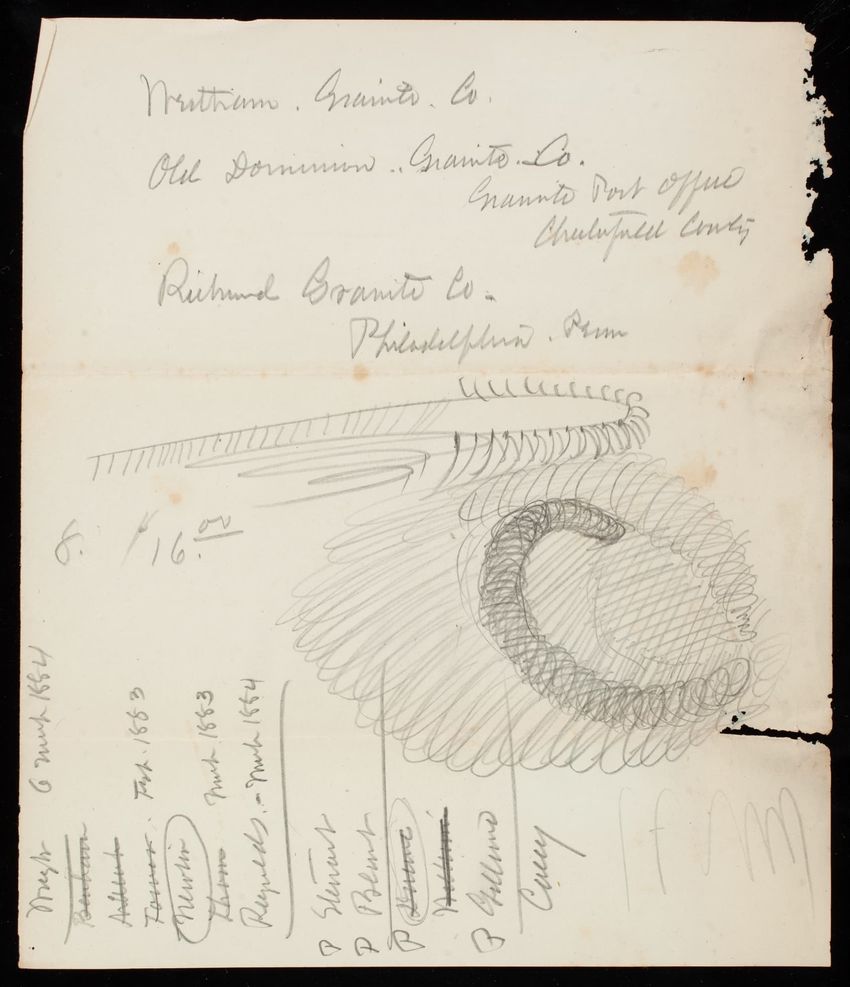 Westham. Granite. Co.
Old Dominion.. Granite. Co.
Granite Post Office
Chesterfield County
Richmond Granite Co.
Philadelphia. Penn
8. 16.00
Wright 6 March 1884
Benham
Abbot
Feb. 1883
Newton
Thom March 1883
Reynolds. - March 1884
P Stewart
P Blunt
P
P Gillmo
Casey